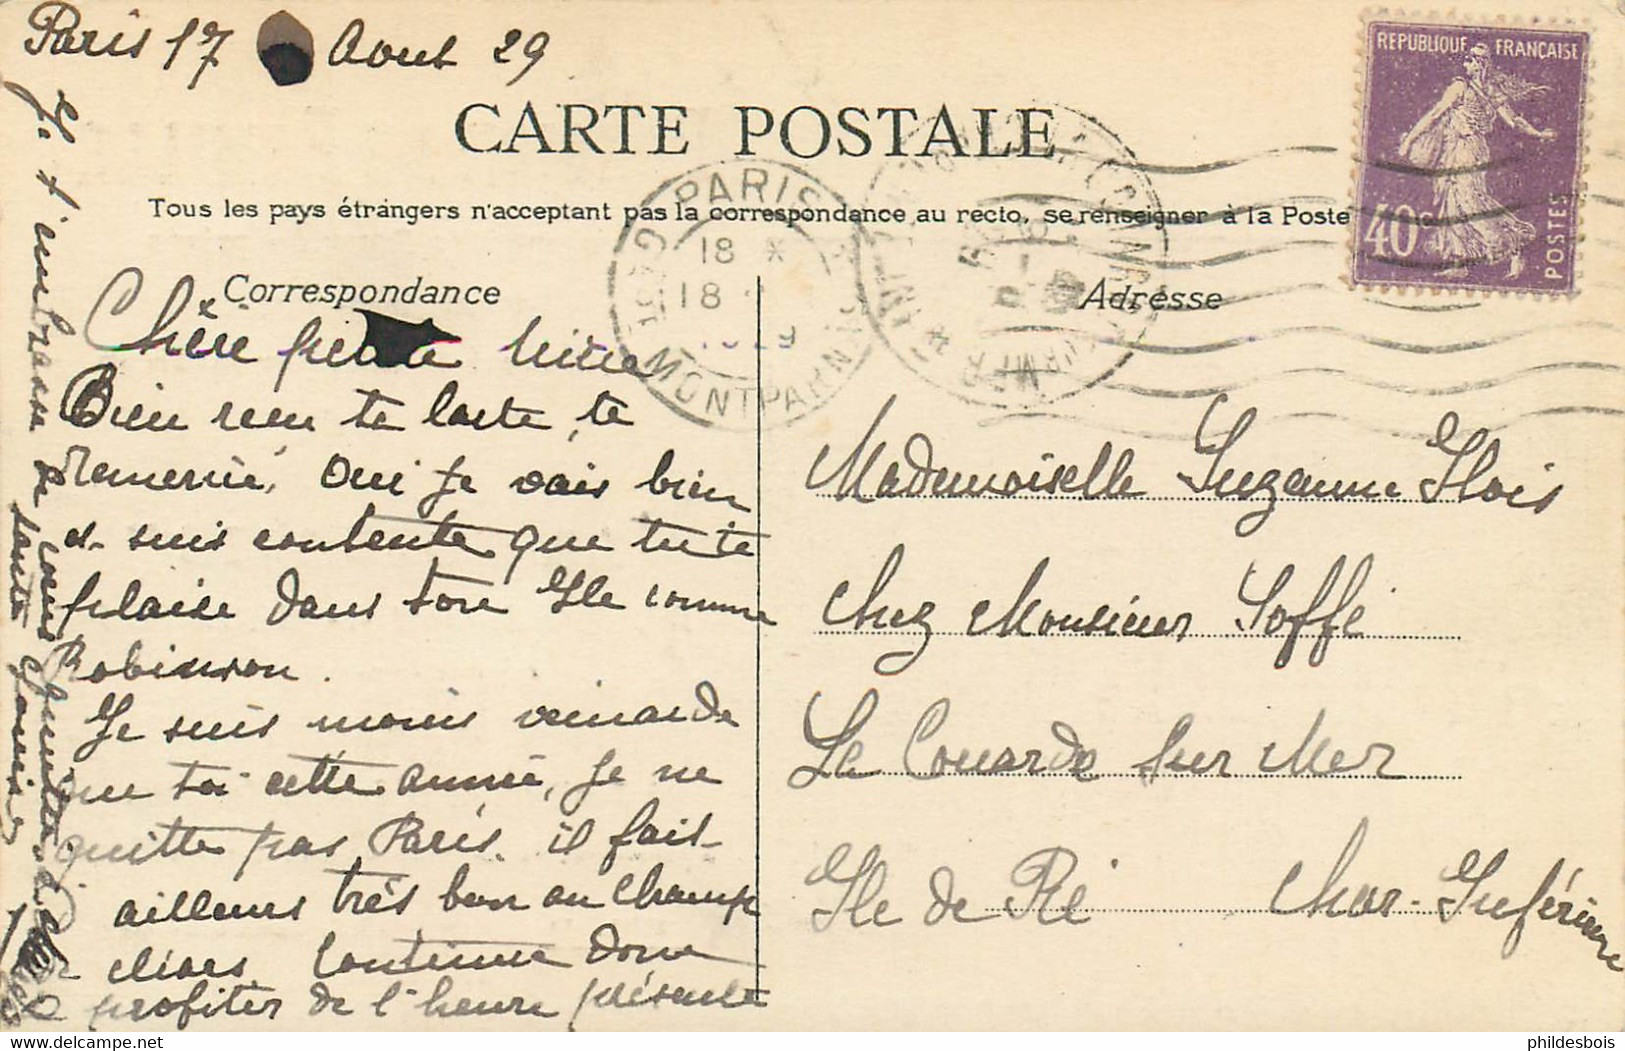 Paris 17 Aout 29
REPUBLIQUE FRANÇAISE
40c
POSTES
CARTE POSTALE
Tous les pays étrangers n'acceptant pas la correspondance au recto, se renseigner à la Poste
PARIS
18 *
18
GARE MONTPARNASSE
Correspondance
Adresse
Chère petite
Bien reçu ta carte, te
remercie, oui je vais bien
et suis contente que tu te
plaise dans ton Ile comme
Robinson.
Je suis moins veinarde
que toi cette année, je ne
quitte pas Paris. il fait
ailleurs très bon au Champ
de Mars. Continue donc
à profiter de l'heure présente
Je t'embrasse de
tante
Mademoiselle Suzanne Glois
Chez Monsieur Soffé
La Couarde sur Mer
Ile de Ré Char-Inférieure
phildesbois